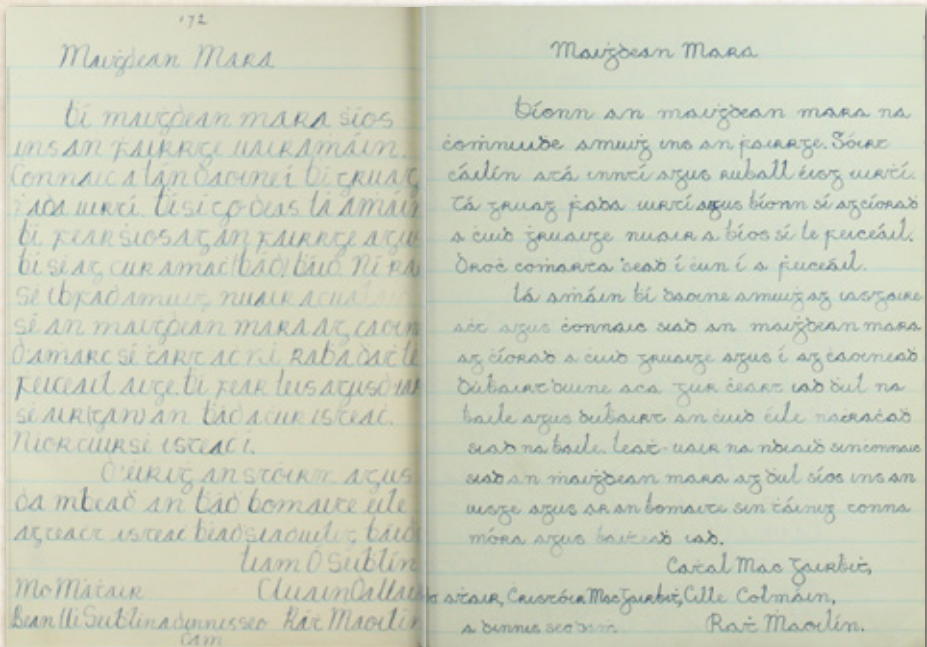 172
Maiġdean Mara
Bí maiġdean mara síos
ins an ḟairrge uair amáin.
Connaic a lán daoine í bí gruag
fada uirtí. Bí sí co deas lá amáin
bí fear síos ag an ḟairrge agus
bí sé ag cur amaċ (bád) báid. Ní ra
sé i bfad amuiġ nuair a
sé an maiġdean mara ag caoin
D'amarc sé ṫart aċ ní rab a daṫ le
feiceáil aige. Bí fear leis agus
sé air (gan) an bád a ċur isteaċ.
Níor ċuir sé isteaċ í.
D'éiriġ an stoirm agus
dá mbeaḋ an bád bomaite eile
ag teaċt isteaċ béaḋ siad uilig báid
Liam Ó Suiblin
Mo Ṁáṫair
Bean Uí Suiblin a d'innis seo Ráṫ Maoilin
dam
Maiġdean Mara
Bíonn an maiġdean mara na
cómnuiḋe amuiġ ins an ḟairrge. Sóirt
cáilín atá inntí agus ruball éisg uirtí.
Tá gruag ḟada uirtí agus bíonn sí ag cíoraḋ
a cuid gruaige nuair a bíos sí le feiceáil.
Droċ ċomarta 'seaḋ í cun í a ḟeiceáil.
Lá aṁáin bí daoine amuiġ ag iasgaire
aċt agus ċonnaic siad an maiġdean mara
ag cíoraḋ a cuid gruaige agus í ag caoineaḋ
Duḃairt duine aca gur ċeart iad dul na
baile agus duḃairt an ċuid eile naċ raċaḋ
siad na baile. Leaṫ-uair na ndiaiḋ sin connaic
siad an maiġdean mara ag dul síos ins an
uisge agus ar an bomaite sin ṫáinig tonna
móra agus baiteaḋ iad.
Caṫal Mac Gairbiṫ,
aṫair, Cristóir Mac Gairbiṫ, Cille Colmáin,
a d'innis seo dam. Raṫ Maoilín.